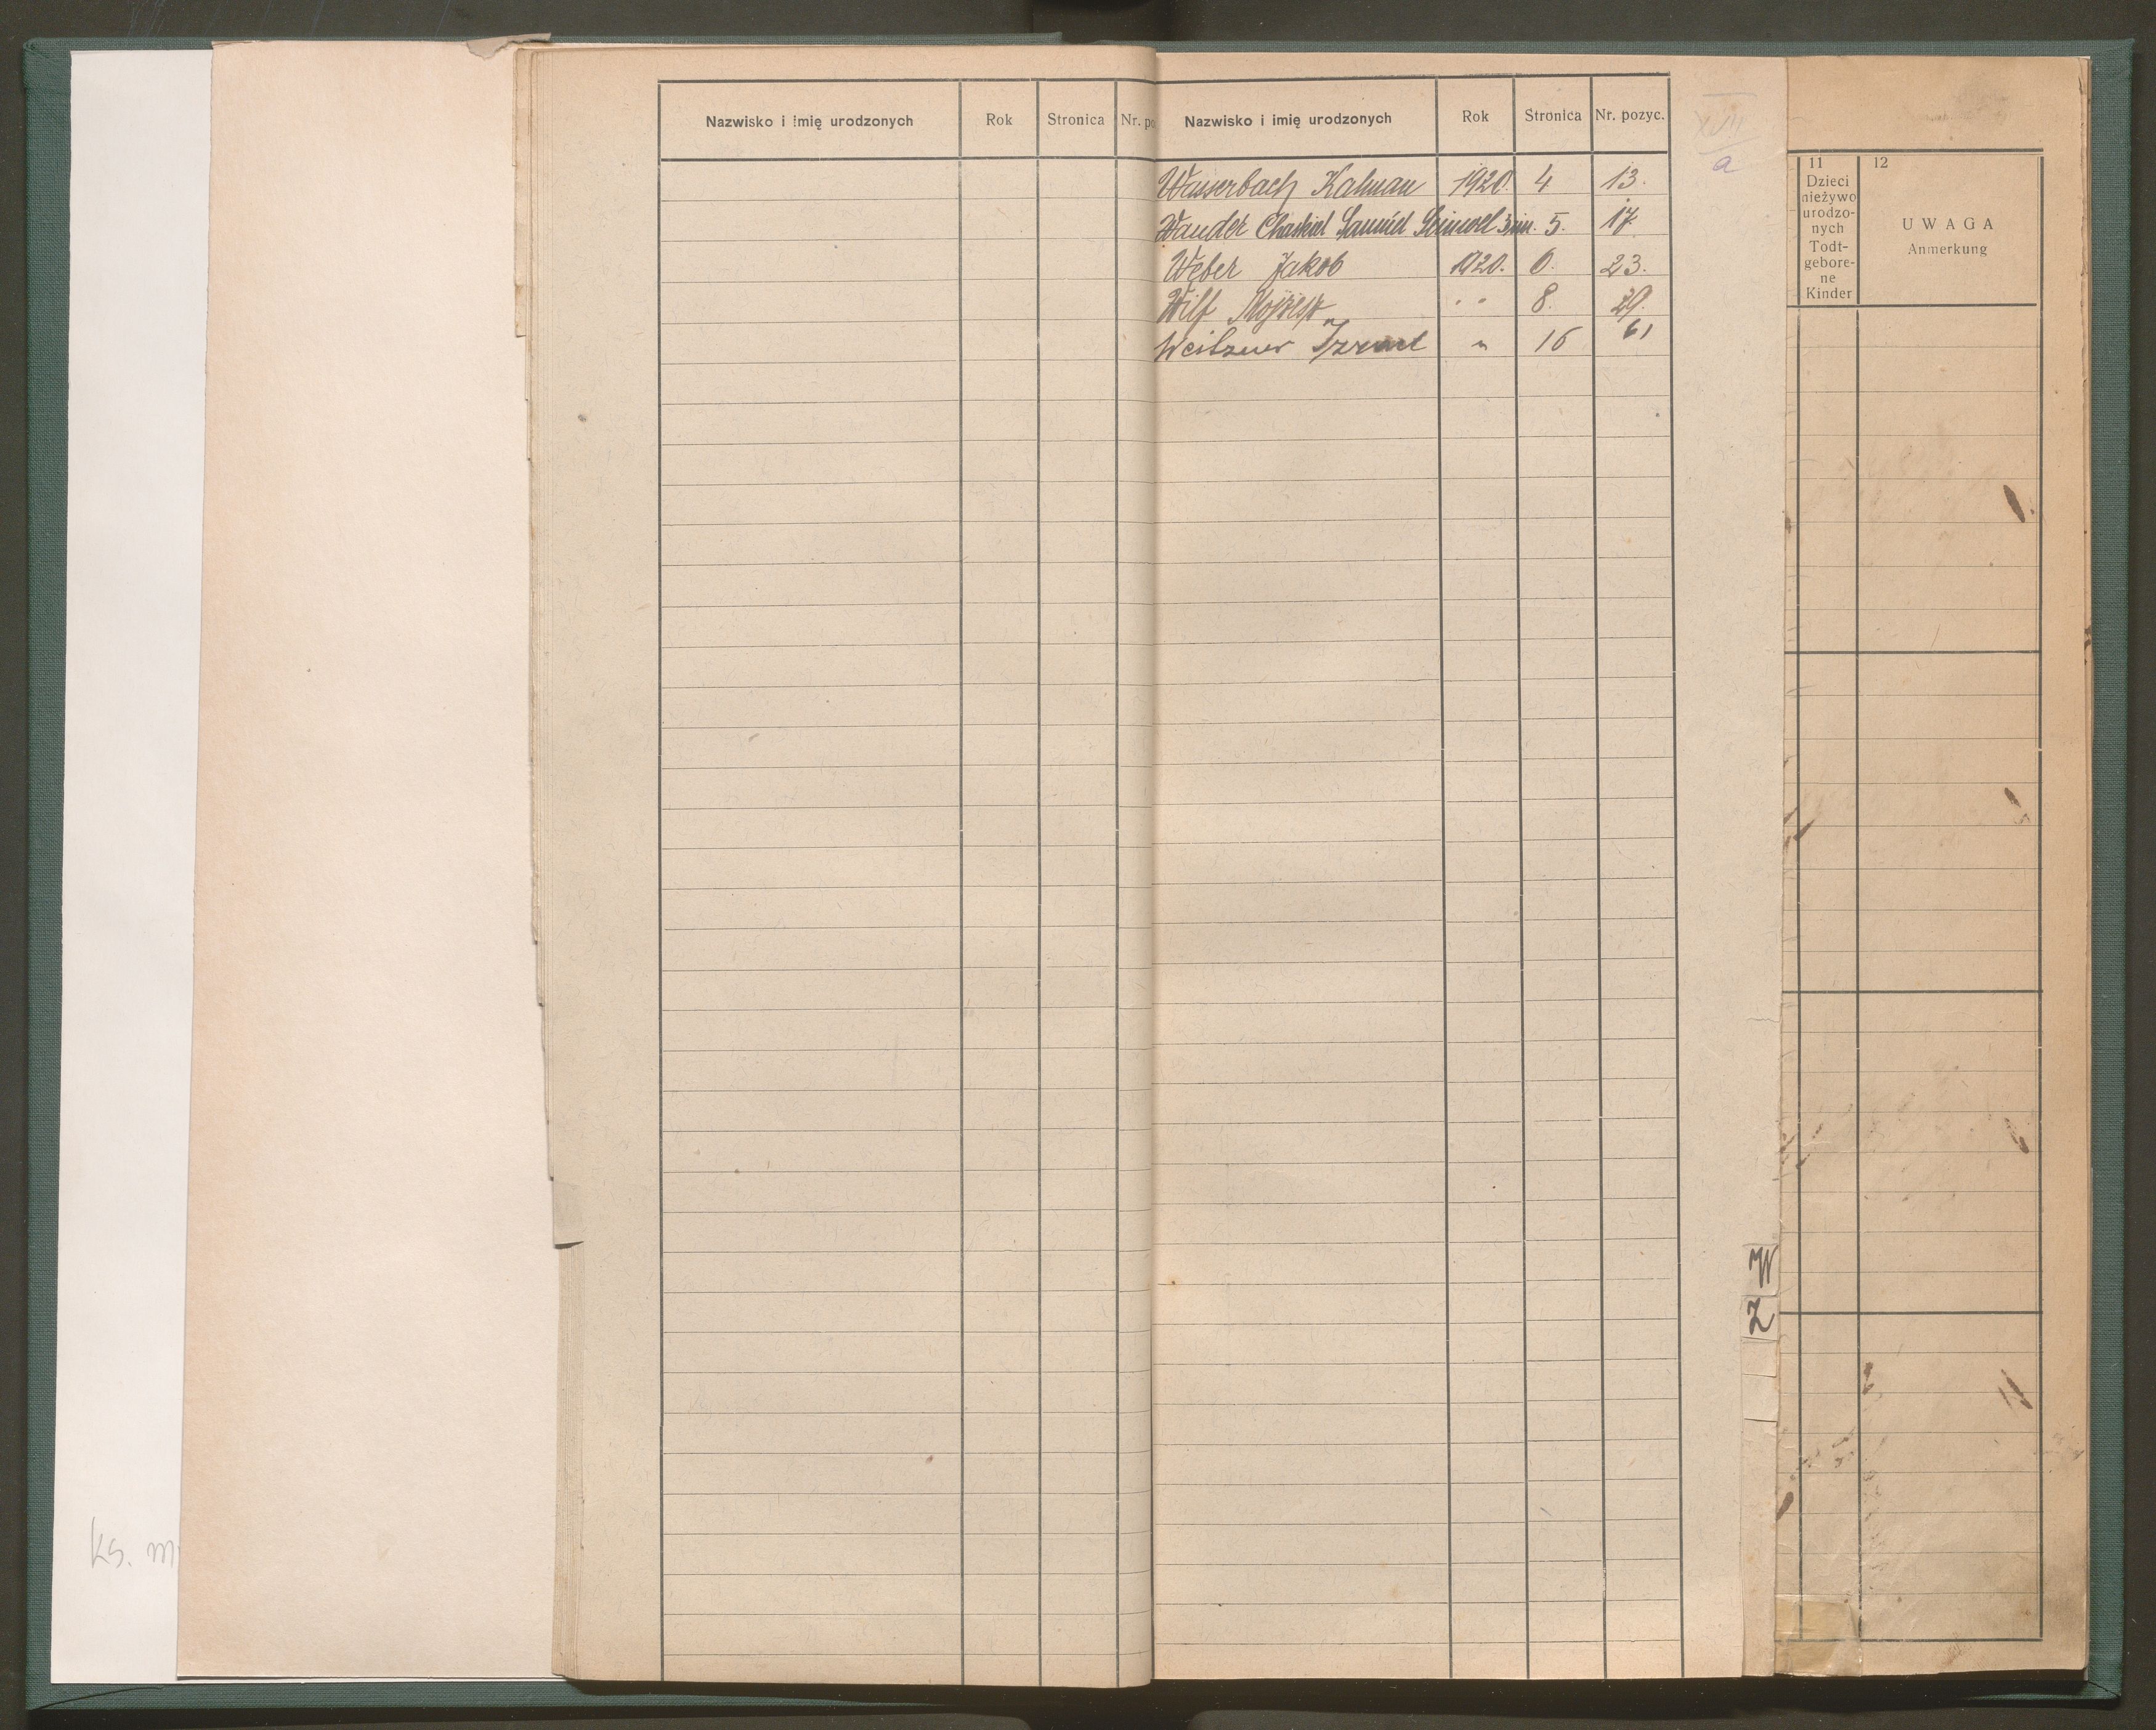 Nazwisko i imię urodzonych Rok Stronica Nr. po
Nazwisko i imię urodzonych Rok Stronica Nr. pozyc.
Wasserbach Kalman 1920. 4 13.
Wander Chaskel Samuel 5. 17.
Weber Jakob 1920. 6. 23.
Wilf Mojżesz " 8. 29.
Weitzner Izrael " 16 61
XVII
a
11
Dzieci
nieżywo
urodzo-
nych
Todt-
gebore-
ne
Kinder
12
UWAGA
Anmerkung
W
Z
ks. m